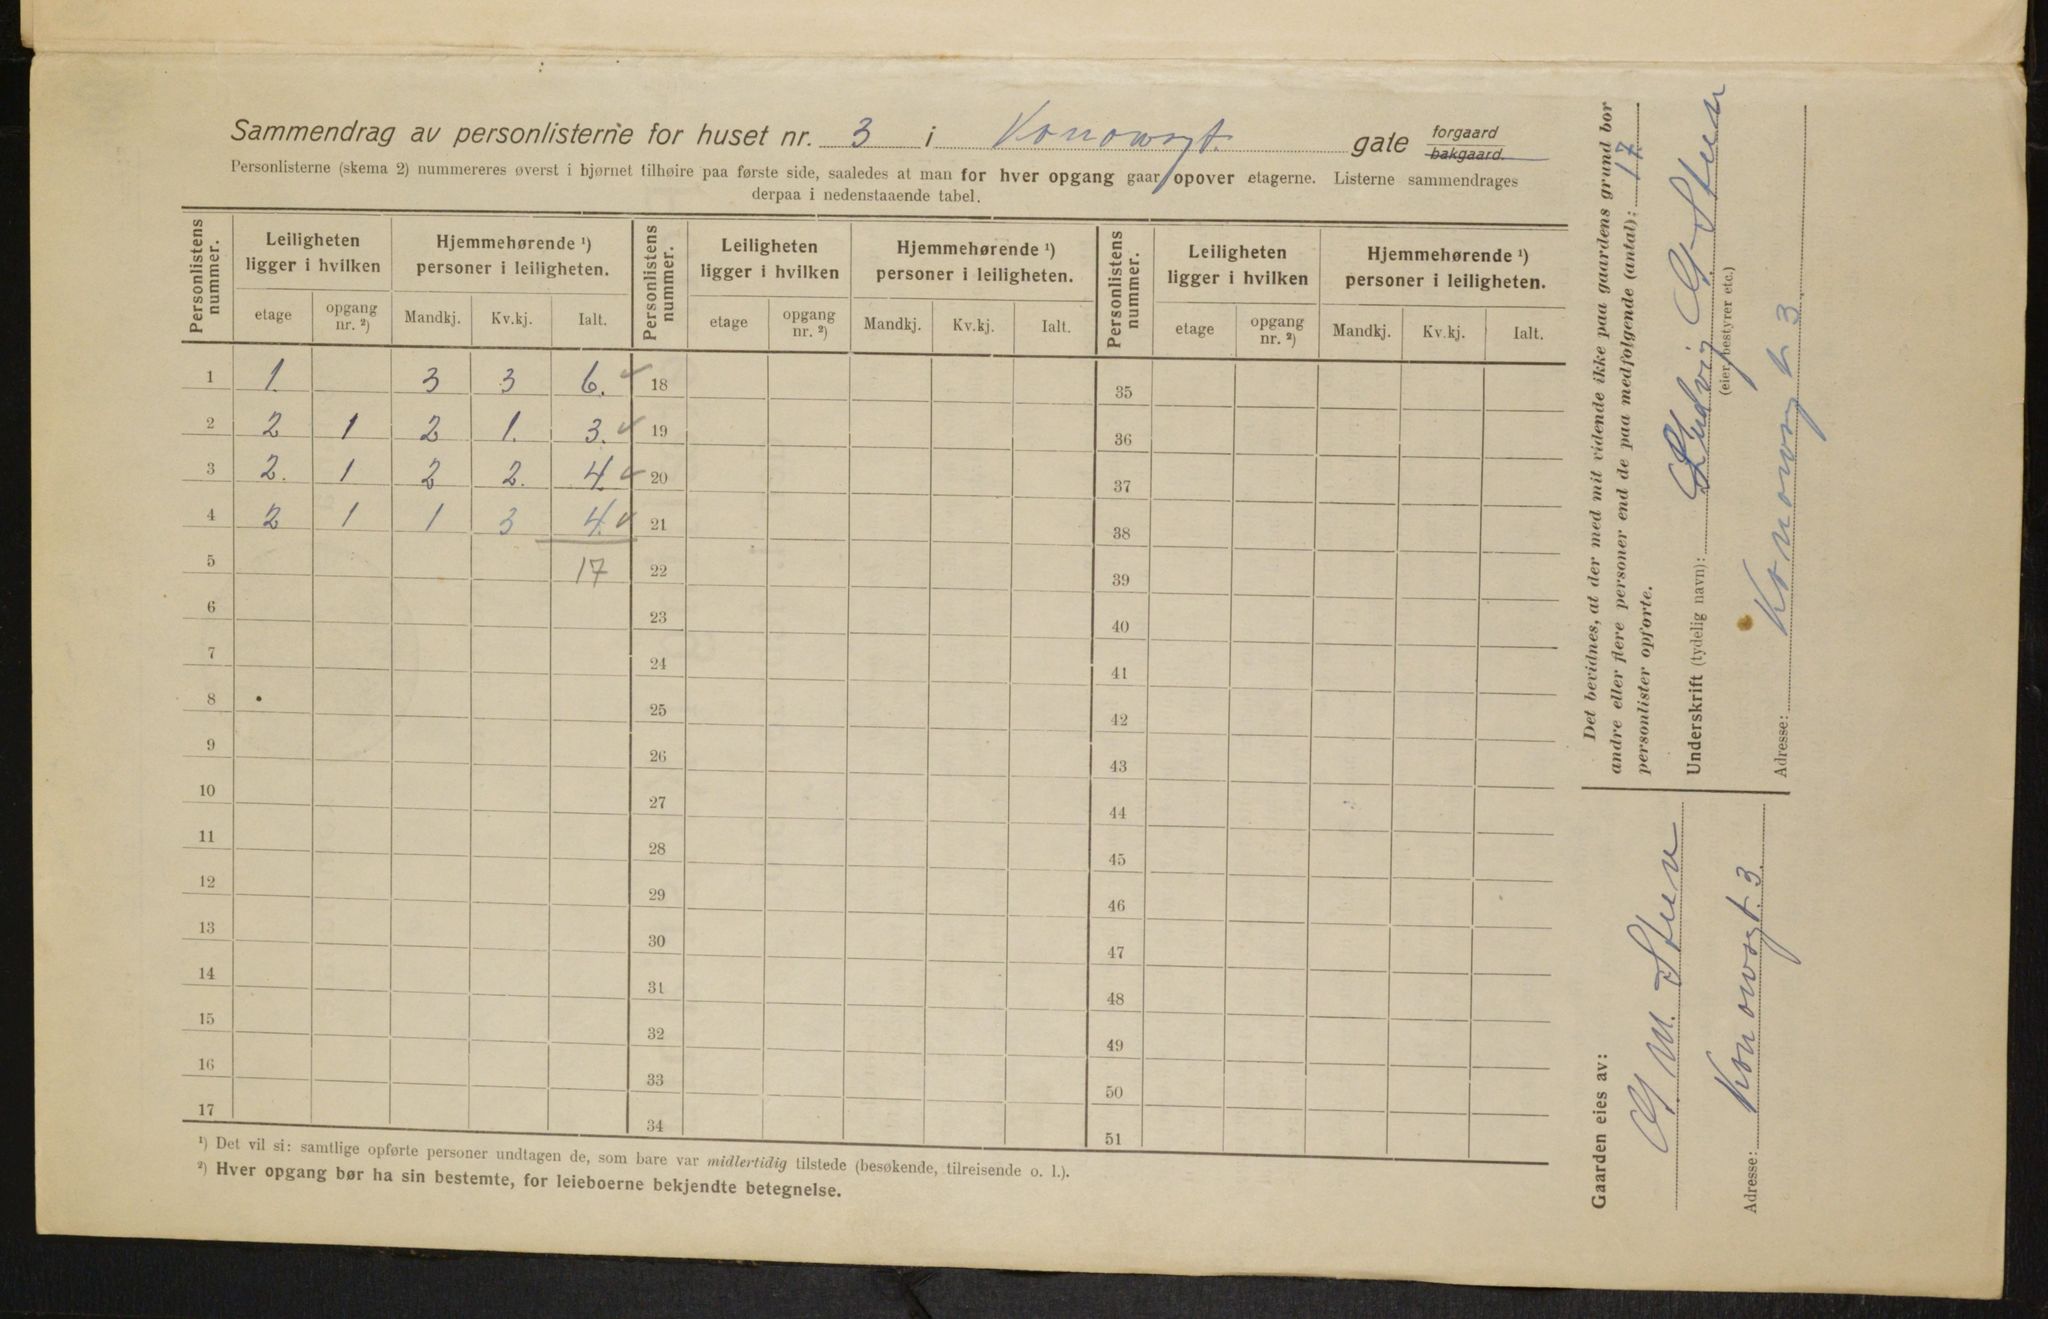 Sammendrag av personlisterne for huset nr. 3 i Konowsgt. gate forgaard bakgaard.
Personlisterne (skema 2) nummereres øverst i hjørnet tilhøire paa første side, saaledes at man for hver opgang gaar opover etagerne. Listerne sammendrages
derpaa i nedenstaaende tabel.
Personlistens nummer. Leiligheten ligger i hvilken Hjemmehørende ¹) personer i leiligheten. Personlistens nummer. Leiligheten ligger i hvilken Hjemmehørende ¹) personer i leiligheten. Personlistens nummer. Leiligheten ligger i hvilken Hjemmehørende ¹) personer i leiligheten.
etage opgang nr. ²) Mandkj. Kv.kj. Ialt. etage opgang nr. ²) Mandkj. Kv.kj. Ialt. etage opgang nr. ²) Mandkj. Kv.kj. Ialt.
1 1. 3 3 6. ✓ 18 35
2 2 1 2 1. 3. ✓ 19 36
3 2. 1 2 2. 4. ✓ 20 37
4 2 1 1 3 4. ✓ 21 38
5 17 22 39
6 23 40
7 24 41
8 25 42
9 26 43
10 27 44
11 28 45
12 29 46
13 30 47
14 31 48
15 32 49
16 33 50
17 34 51
¹) Det vil si: samtlige opførte personer undtagen de, som bare var midlertidig tilstede (besøkende, tilreisende o. l.).
²) Hver opgang bør ha sin bestemte, for leieboerne bekjendte betegnelse.
Det bevidnes, at der med mit vidende ikke paa gaardens grund bor
andre eller flere personer end de paa medfølgende (antal); 17
personlister opførte.
Underskrift (tydelig navn): Ludvig
(eier, bestyrer etc.)
Adresse: Konowsgt 3
Gaarden eies av:
M.
Adresse: Konowsgt. 3.